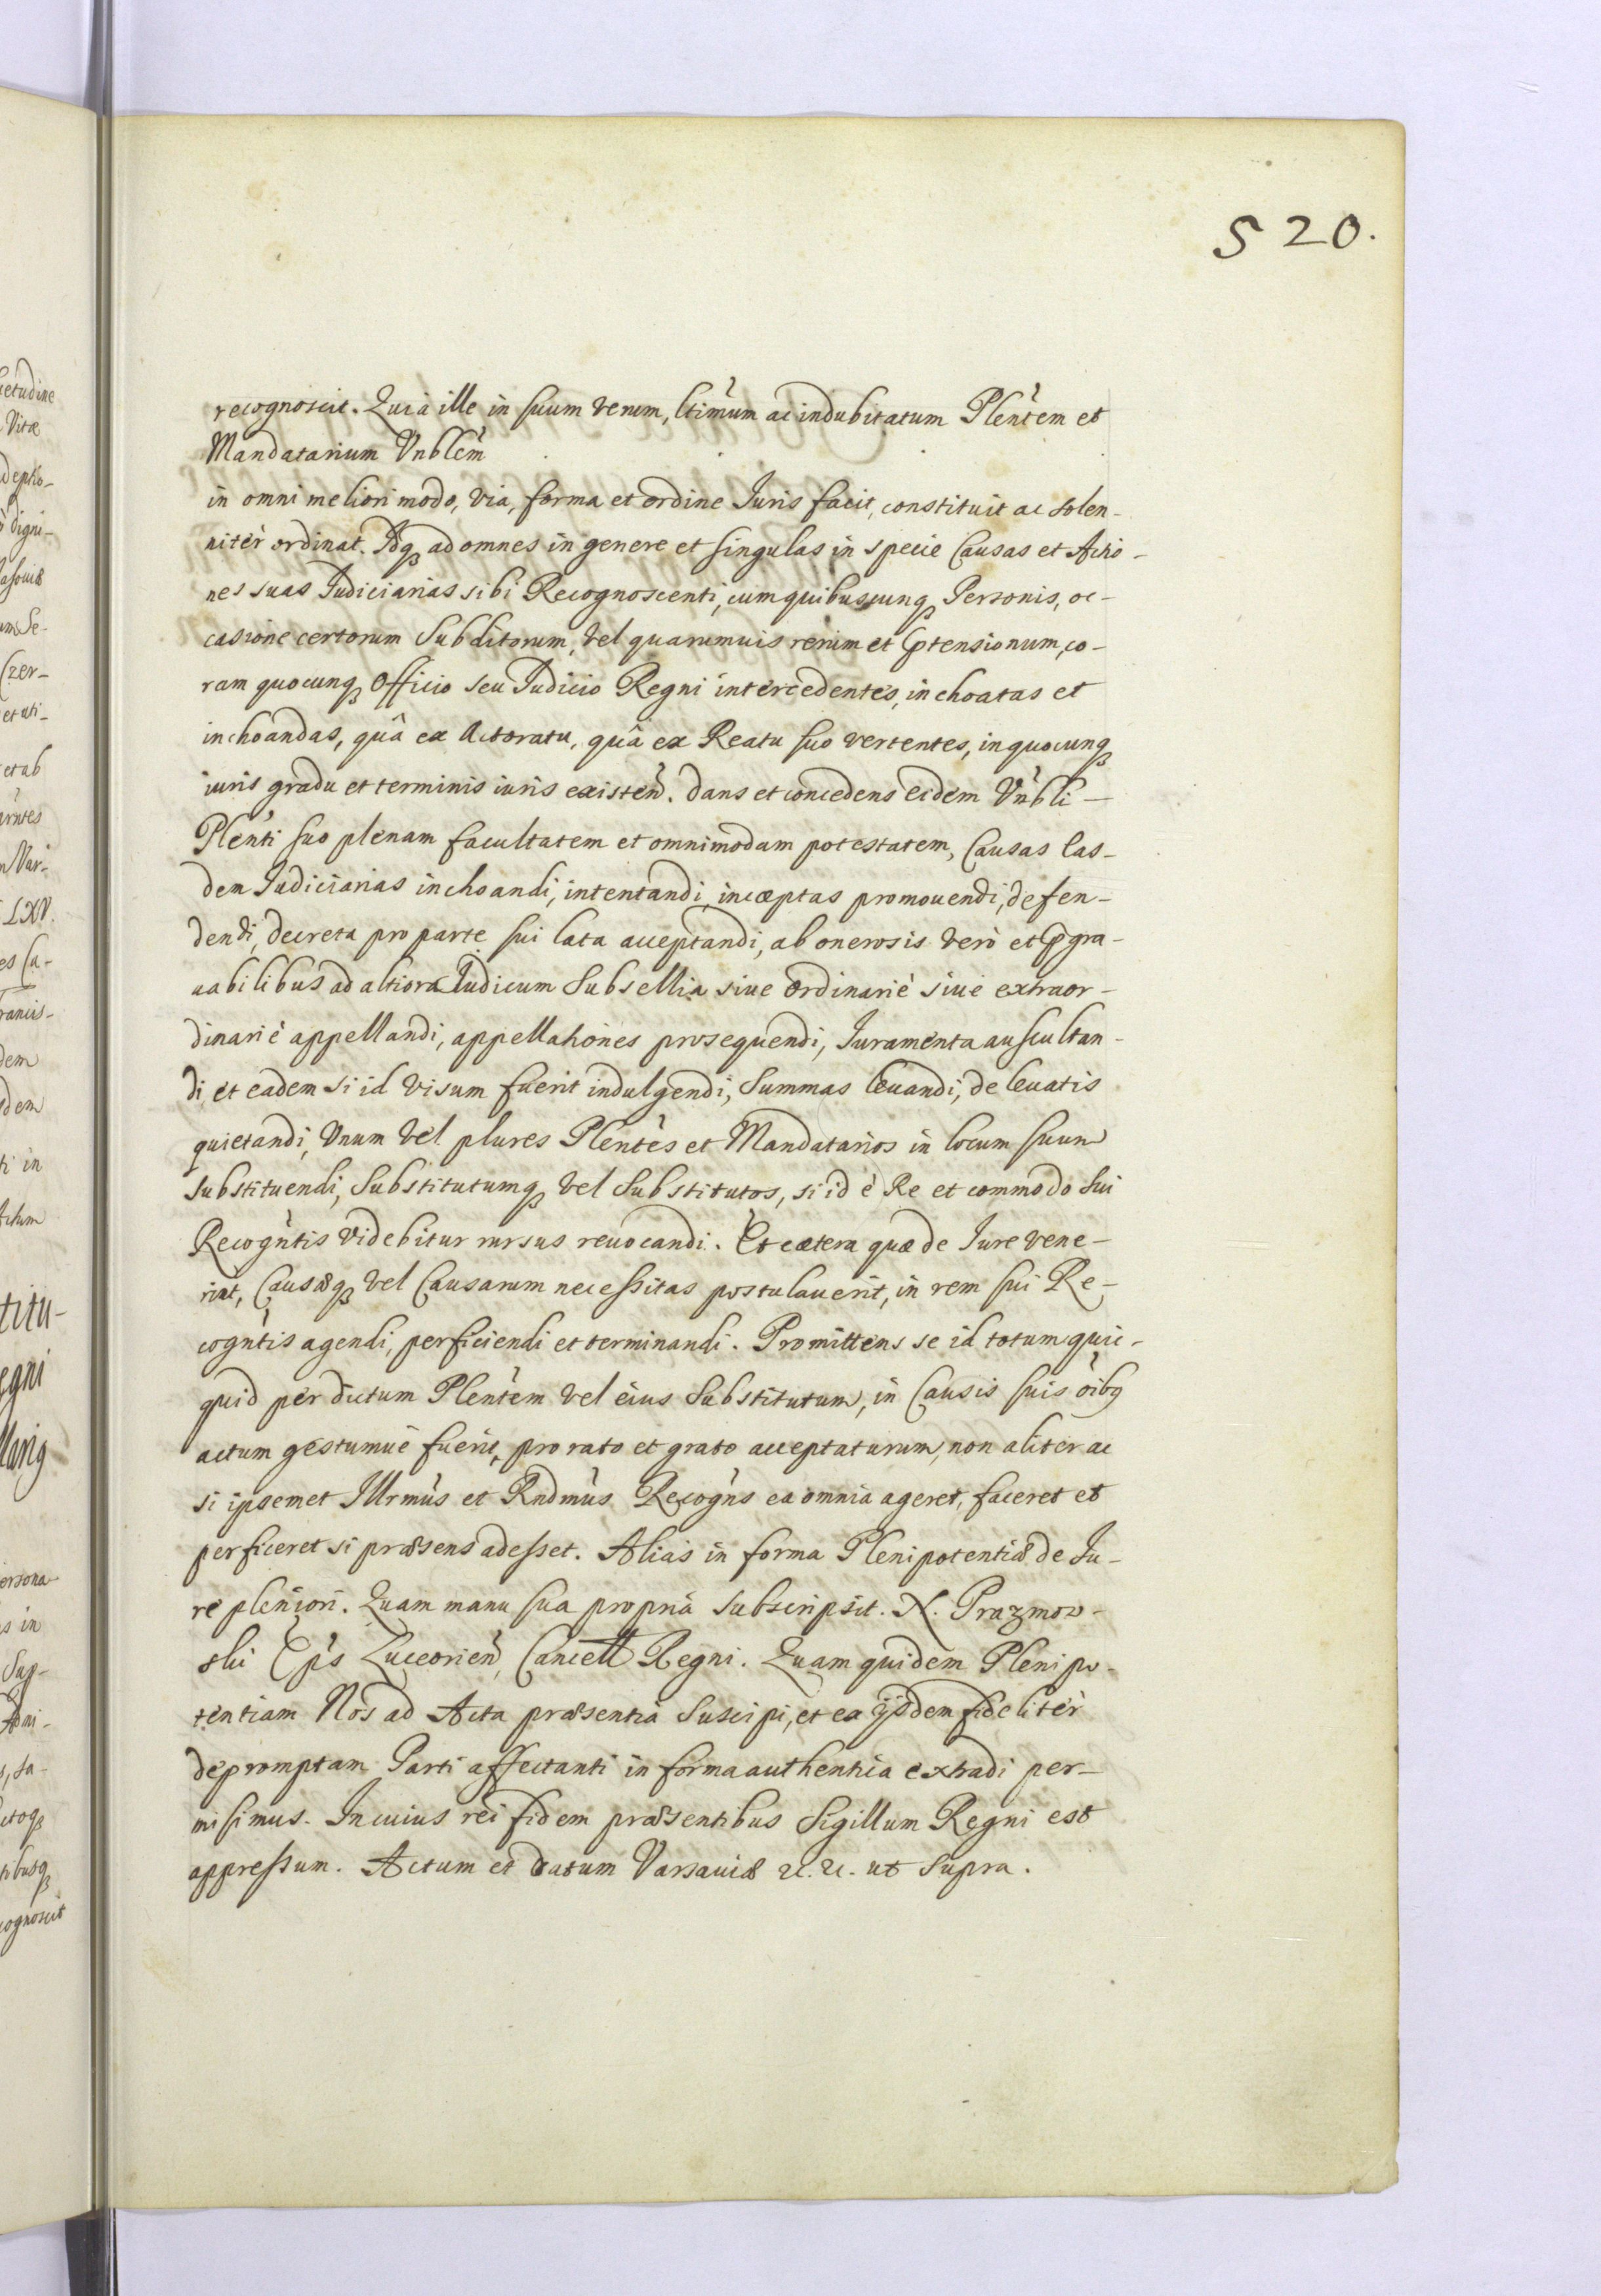 520.
recognoscit. Quia ille in suum verum, ltimum ac indubitatum Plentem et
Mandatarium Vnblem
in omni meliori modo, via, forma et ordine Iuris facit, constituit ac solen-
nitèr ordinat. Idq ad omnes in genere et singulas in specie Causas et Actio-
nes suas Iudiciarias sibi Recognoscenti, cum quibuscunq Personis, oc-
casione certorum Subditorum, vel quarumuis rerum et Prtensionum, co-
ram quocunq Officio seu Iudicio Regni intercedentes, inchoatas et
inchoandas, quâ ex Actoratu, quâ ex Reatu suo vertentes, in quocunq
iuris gradu et terminis iuris existen. Dans et concedens eidem Vnbli
Plenti suo plenam facultatem et omnimodam potestatem, Causas eas-
dem Iudiciarias inchoandi, intentandi, incæptas promouendi, defen-
dendi, decreta pro parte sui lata acceptandi, ab onerosis verò et Prgra-
uabilibus ad altiora Iudicum Subsellia siue ordinariè siue extraor-
dinariè appellandi, appellationes prosequendi, Iuramenta auscultan-
di, et eadem si id visum fuerit indulgendi, Summas leuandi, de leuatis
quietandi, Vnum vel plures Plentes et Mandatarios in locum suum
substituendi, Substitutumq vel Substitutos, si id è Re et commodo sui
Recogntis videbitur rursus reuocandi. Et cætera quæ de Iure vene-
rint, Causæq vel Causarum necessitas postulauerit, in rem sui Re-
cogntis agendi, perficiendi et terminandi. Promittens se id totum quic-
quid per dictum Plentem vel eius Substitutum, in Causis suis oibq
actum gestumuè fuerit, pro rato et grato acceptaturum, non aliter ac
si ipsemet Illrmus et Rndmus Recogns ea omnia ageret, faceret et
perficeret si præsens adesset. Alias in forma Plenipotentiæ de Iu-
re pleniori. Quam manu sua propria subscripsit. N. Prazmow-
ski Eps Luceorien, Cancell Regni. Quam quidem Plenipo-
tentiam Nos ad Acta præsentia suscipi, et ex ijsdem fidelitèr
depromptam Parti affectanti in forma authentica extradi per-
misimus. In cuius rei fidem præsentibus Sigillum Regni est
appressum. Actum et datum Varsauiæ &c. &c. ut supra.